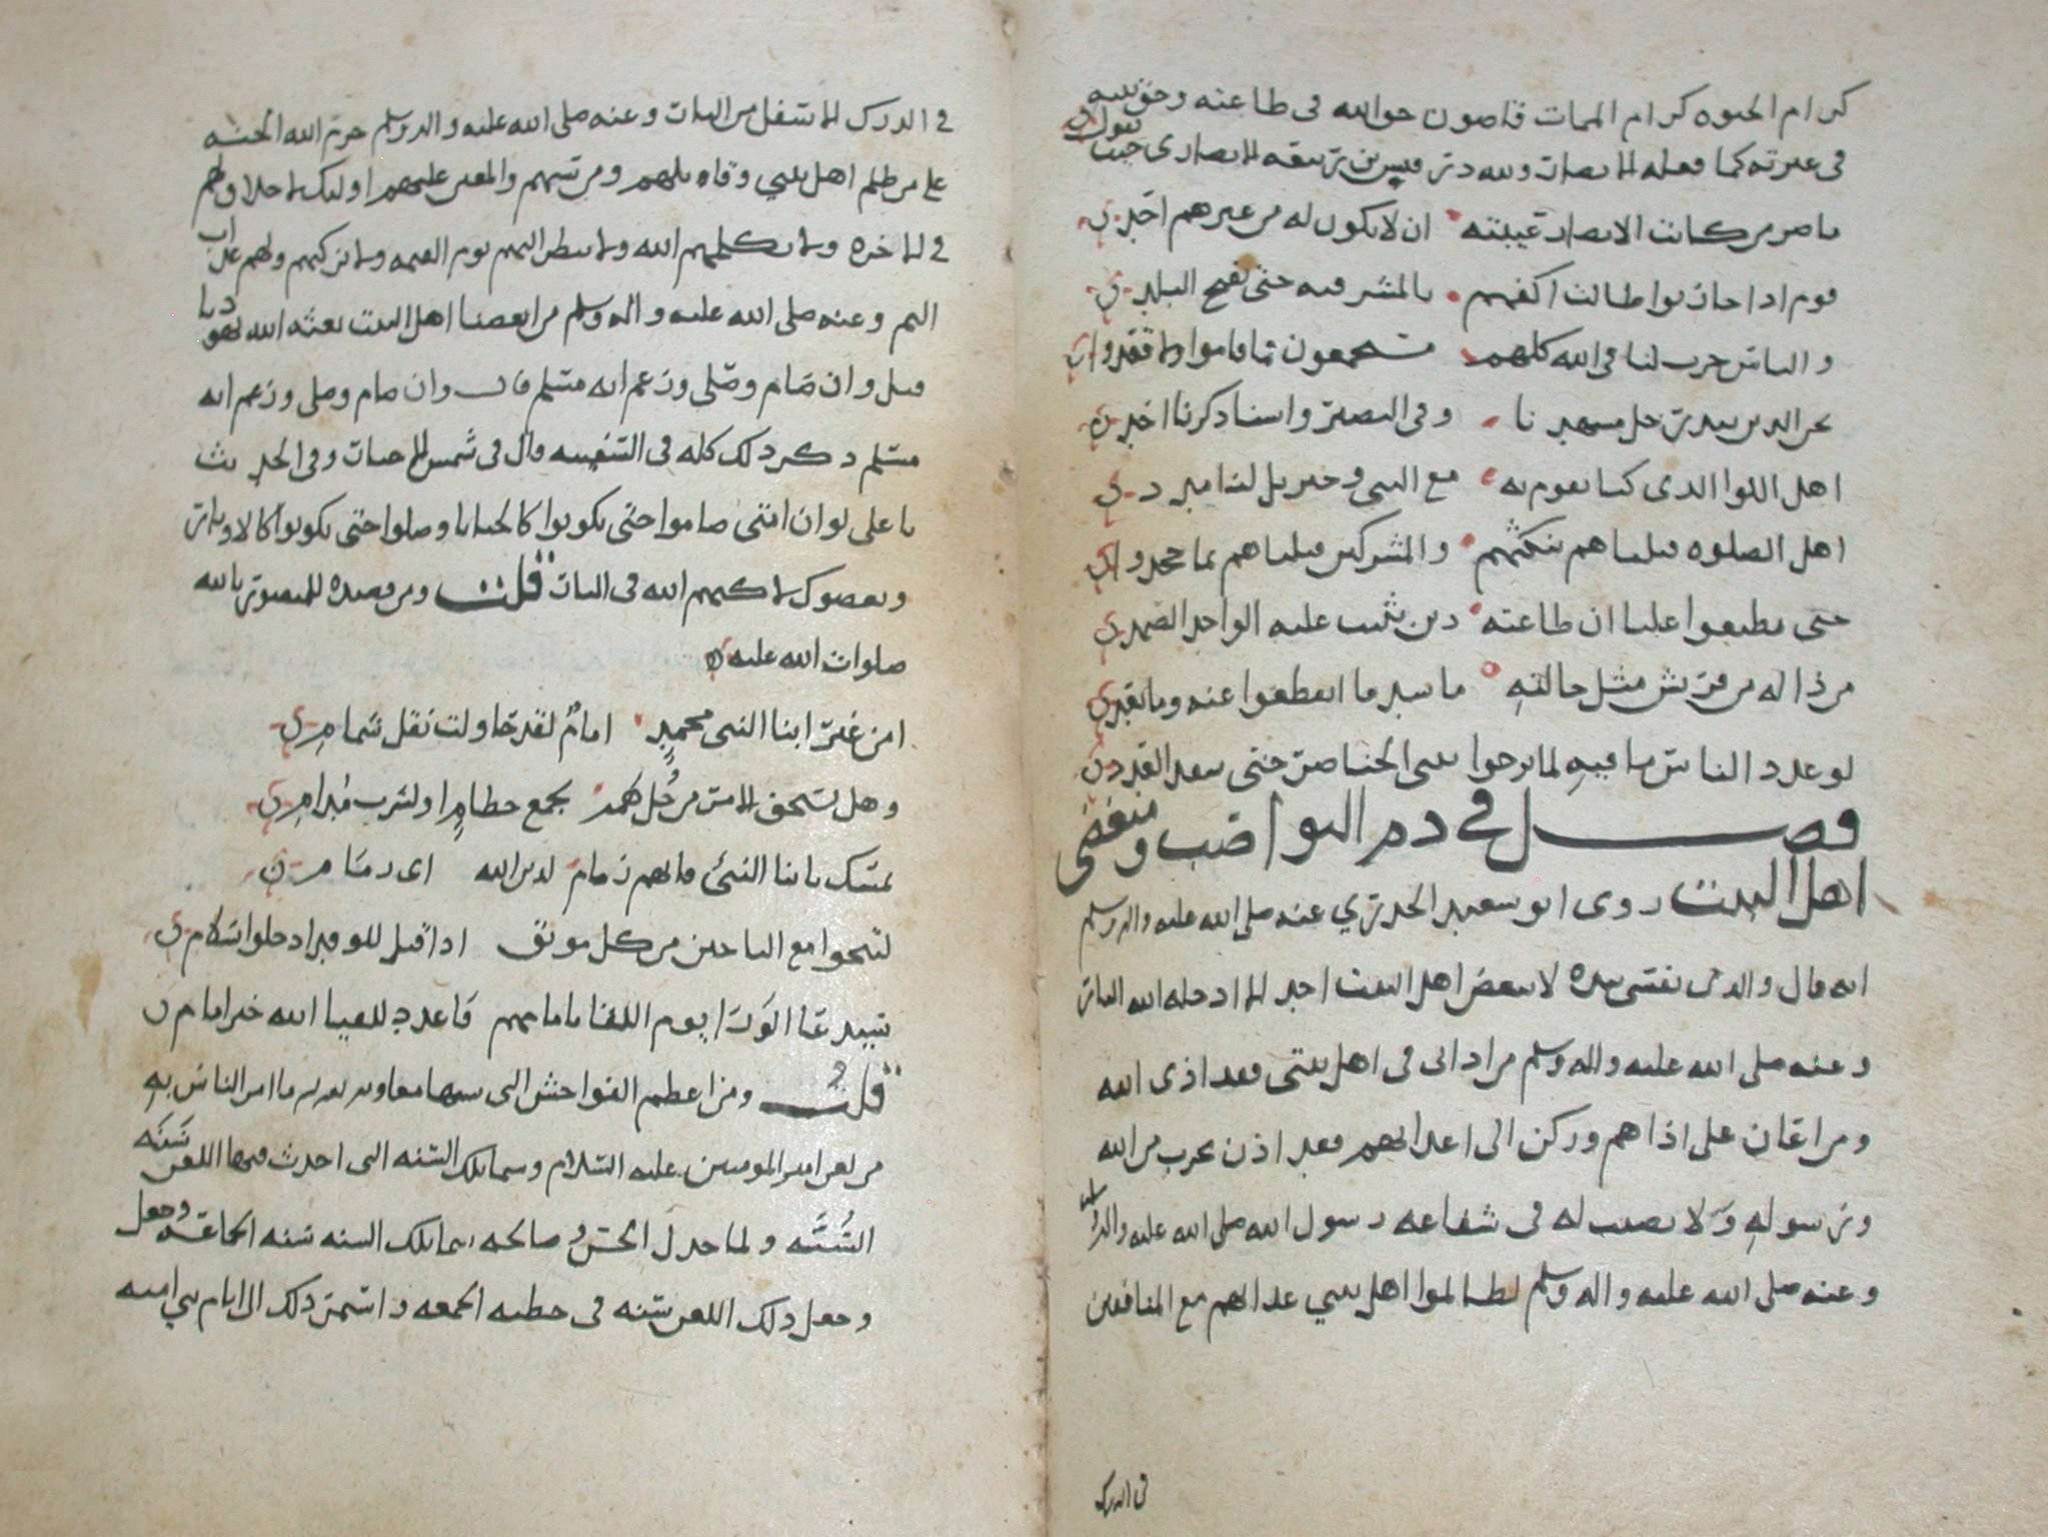 كرام الحيوه كرام الممات قاضون حق الله في طاعته وحق نبيه
في عترته كما فعله الانصار ولله در قيس بن الانصاري حيث يقول
يا صر من كانت الانصار عيبته ان لا يكون له من غيرهم احد
قوم اذا حاربوا طالت اكفهم بالمشرفيه حتى
والناس حرب لنا في الله كلهم مستجمعون فما قاموا ولا قعدوا
نحن الذين ببدر وفي النصير واسناد كرنا احد
اهل اللوا الذى كنا نقوم به مع النبي وجبريل لنا مدد
اهل الصلوه قتلناهم بنكثهم والمشركين قتلناهم بما جحدوا
حتى تطيعوا عليا ان طاعته دين يثيب عليه الواحد الصمد
من ذا له من قريش مثل حالته ما انقطعوا عنه وما
لو عدد الناس ما فيه لما برحوا يثني الخناصر حتى ينفد العدد
فصل في ذم النواصب ومبغضي
اهل البيت روى ابو سعيد الخدري عنه صلى الله عليه واله وسلم
انه قال والذي نفسي بيده لا يبغض اهل البيت احد الا ادخله الله النار
وعنه صلى الله عليه واله وسلم من اذاني في اهل بيتي فقد اذى الله
ومن اعان على اذاهم وركن الى اعدائهم فقد اذن بحرب من الله
ورسوله ولا نصيب له في شفاعه رسول الله صلى الله عليه واله وسلم
وعنه صلى الله عليه واله وسلم لظالموا اهل بيتي عذابهم مع المنافقين
في الدرك
في الدرك الاسفل من النار وعنه صلى الله عليه واله وسلم حرم الله الجنه
على من ظلم اهل بيتي وقاتلهم ومن سبهم والمعين عليهم اوليك لا خلاق لهم
في الاخره ولا يكلمهم الله ولا ينظر اليهم يوم القيمه ولا يزكيهم ولهم عذاب
اليم وعنه صلى الله عليه واله وسلم من ابغضنا اهل البيت بعثه الله يهوديا
قيل وان صام وصلى وزعم انه مسلم قال وان صام وصلى وزعم انه
مسلم ذكر ذلك كله في السفينه قال في شمس الاخبار وفي الحديث
يا علي لو ان امتي صاموا حتى يكونوا كالحنايا وصلوا حتى يكونوا كالاوتار
وبغضوك لاكبهم الله في النار قلت ومن قصيده للمنصور بالله
صلوات الله عليه
امن غير ابنا النبي محمد امام لقد حاولت نقل شمام
وهل يستحق الامر من جل همه بجمع حطام او لشرب مدام
تمسك بابنا النبي فانهم زمام لدين الله اى زمام
لتنجوا مع الناجين من كل موبق اذا قيل للوفد ادخلوا بسلام
سيدعا الورا يوم اللقا بامامهم فاعدد للقيا الله خير امام
قلت ومن اعظم الفواحش التى سنها معاويه ما امر الناس به
من لعن امير المومنين عليه السلام وسما تلك السنه التى احدث فيها اللعن سنه
السنه ولما خذل الحسن وصالحه سما تلك السنه سنه الجماعه وجعل
وجعل ذلك اللعن سنه في خطبه الجمعه واستمر ذلك الى ايام بني اميه